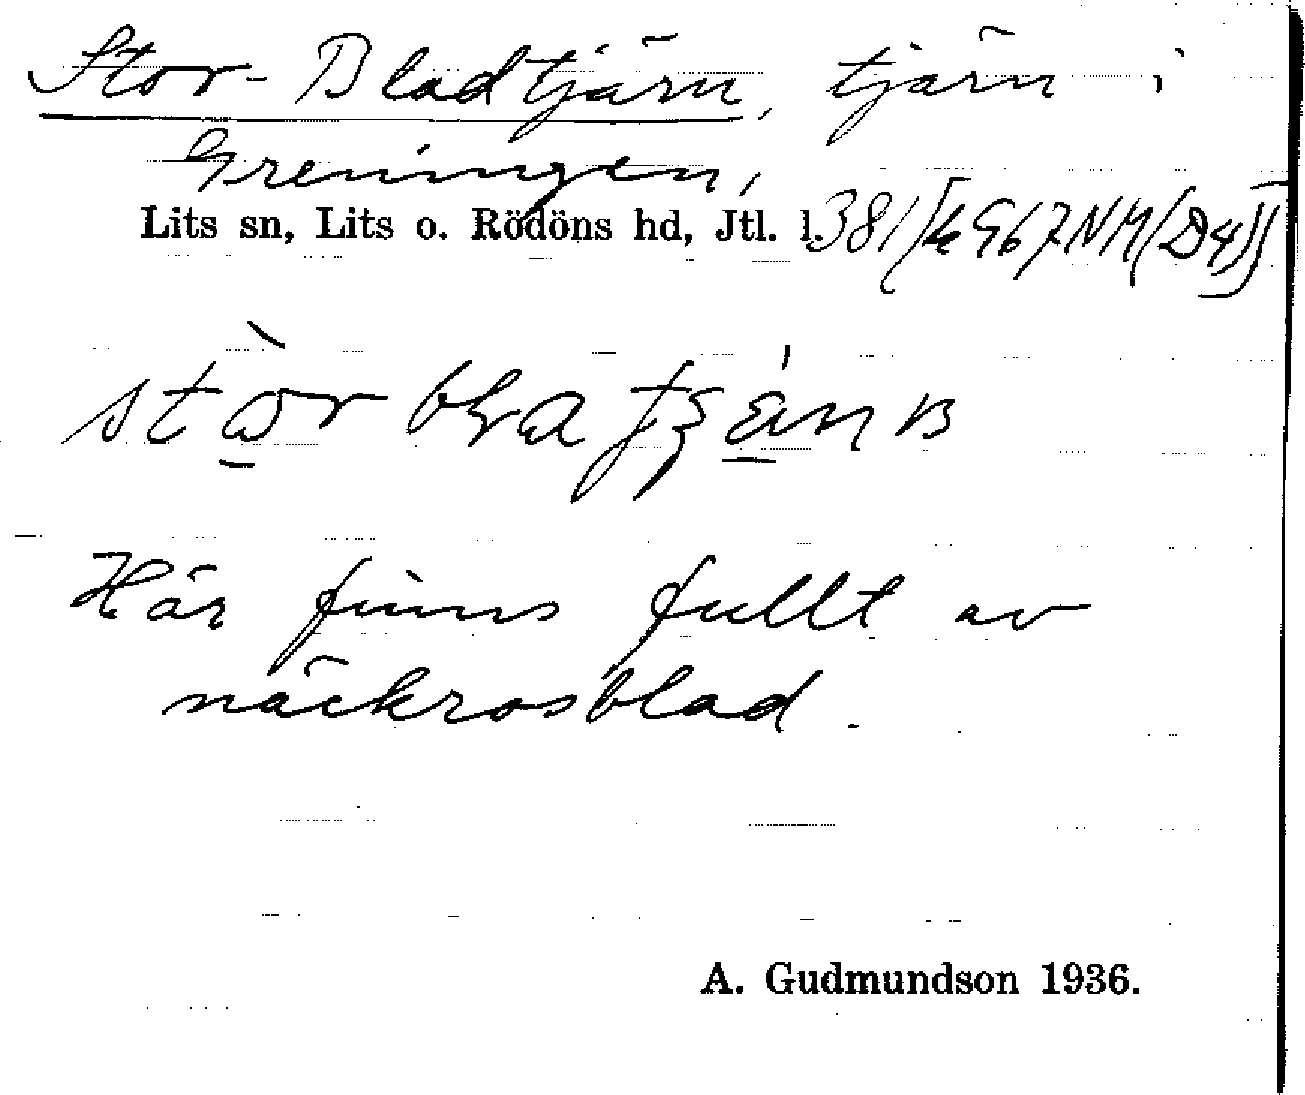 Stor-Bladtjärn, tjärn i
Greningen,
Lits sn, Lits o. Rödöns hd, Jtl. l.
Här finns fullt av
näckrosblad.
A. Gudmundson 1936.